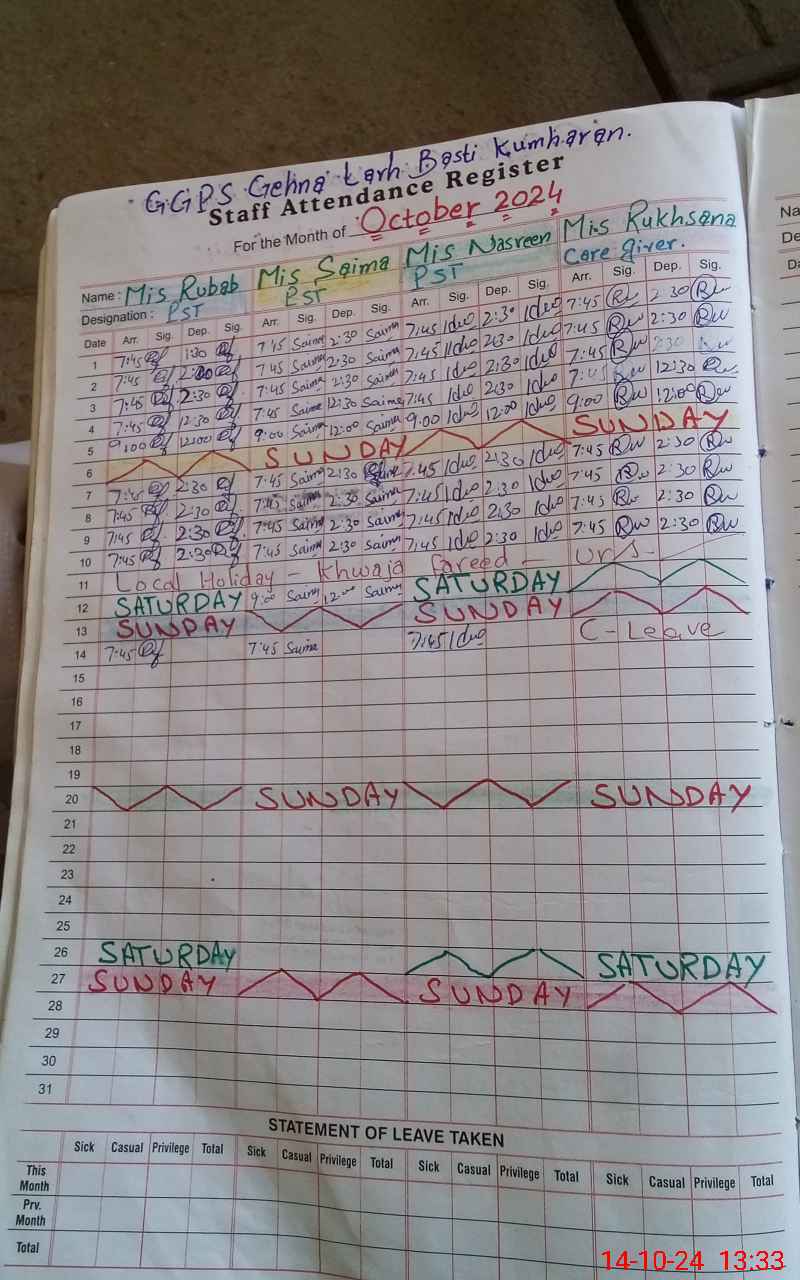 GGPS Gehna Larh Basti Kumharan.
Staff Attendance Register
For the Month of October 2024
Name : Mis Rubab Mis Saima Mis Nasreen Mis Rukhsana
Designation : PST PST PST Care giver.
Date Arr. Sig. Dep. Sig. Arr. Sig. Dep. Sig. Arr. Sig. Dep. Sig. Arr. Sig. Dep. Sig.
1 7:45 1:30 7:45 Saima 2:30 Saima 7:45 2:30 7:45 2:30
2 7:45 7:45 Saima 2:30 Saima 7:45 2:30 7:45 2:30
3 7:45 2:30 7:45 Saima 2:30 Saima 7:45 2:30 7:45 2:30
4 7:45 12:30 7:45 Saima 12:30 Saima 7:45 12:30
5 9:00 12:00 9:00 Saima 12:00 Saima 9:00 12:00 9:00 12:00
6 SUNDAY SUNDAY
7 7:45 2:30 7:45 Saima 2:30 7:45 2:30 7:45 2:30
8 7:45 2:30 7:45 Saima 2:30 Saima 7:45 2:30 7:45 2:30
9 7:45 2:30 7:45 Saima 2:30 Saima 7:45 2:30 7:45 2:30
10 7:45 2:30 7:45 Saima 2:30 Saima 7:45 2:30 7:45 2:30
11 Local Holiday - Khwaja Fareed - Urs -
12 SATURDAY 9:00 Saima 12:00 Saima SATURDAY
13 SUNDAY SUNDAY
14 7:45 7:45 Saima 7:45 C-Leave
15
16
17
18
19
20 SUNDAY SUNDAY
21
22
23
24
25
26 SATURDAY SATURDAY
27 SUNDAY SUNDAY
28
29
30
31
STATEMENT OF LEAVE TAKEN
Sick Casual Privilege Total Sick Casual Privilege Total Sick Casual Privilege Total Sick Casual Privilege Total
This Month
Prv. Month
Total
Na
De
Da
14-10-24 13:33